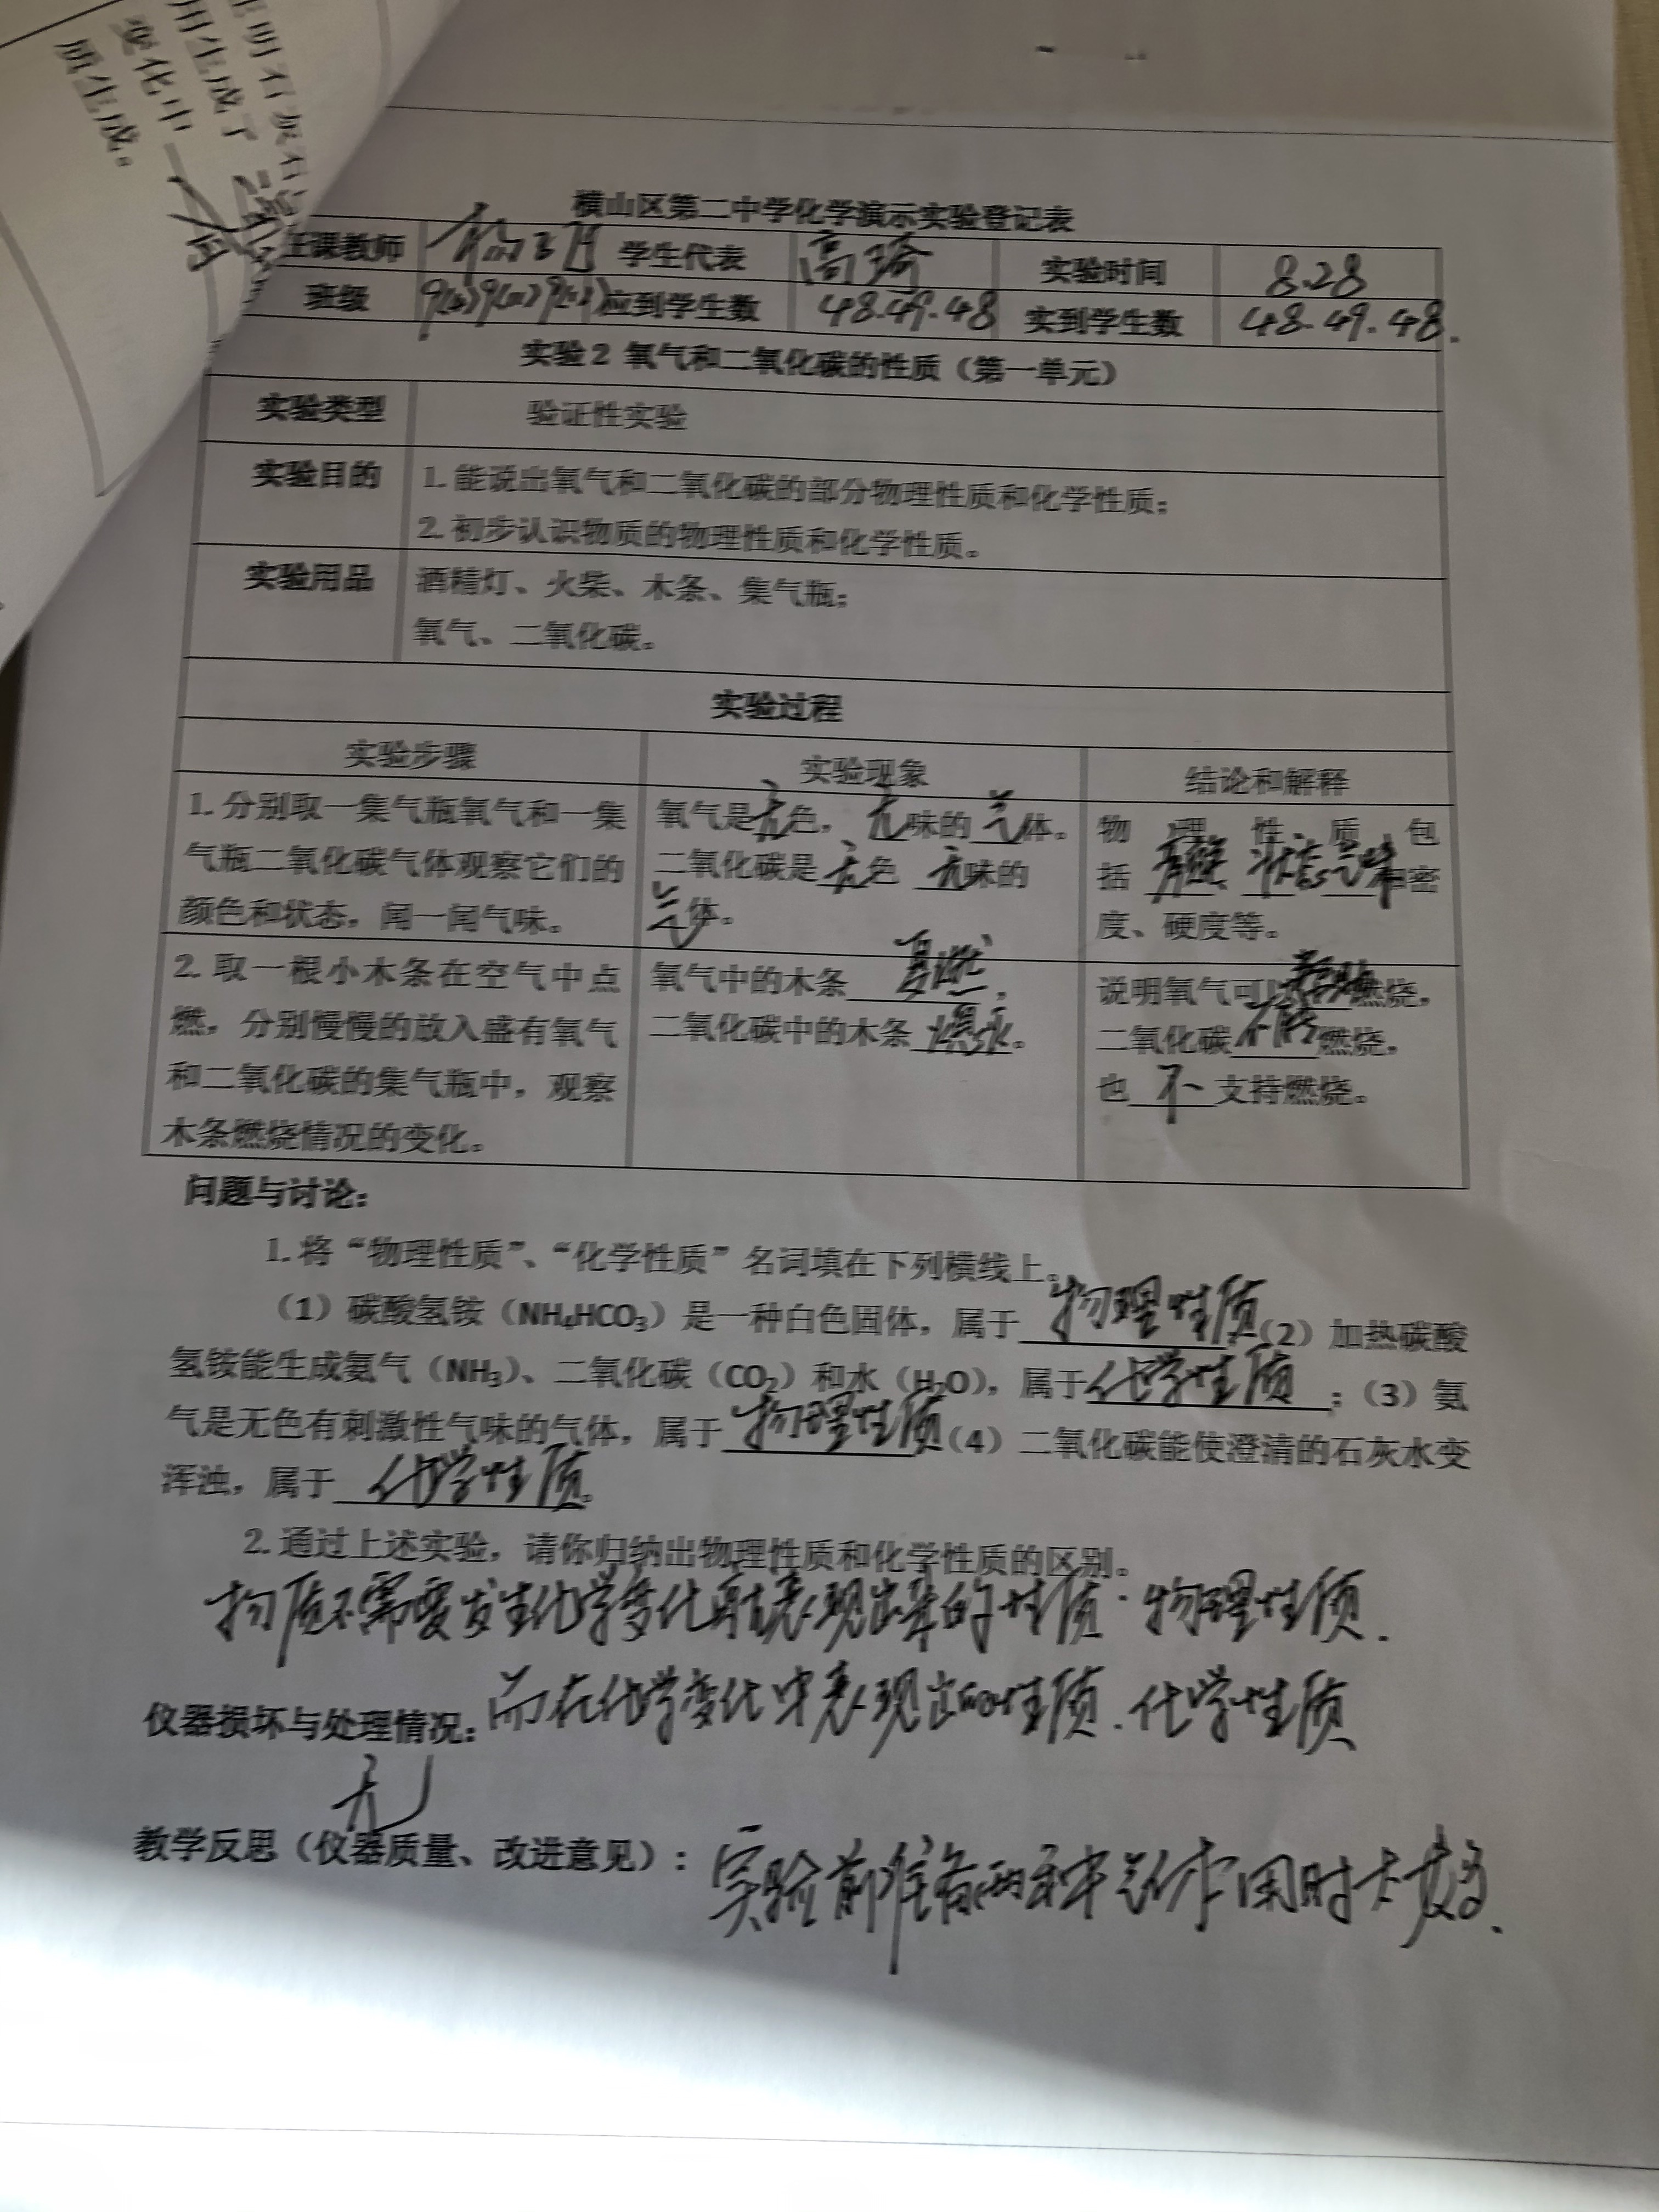 明石灰石
用生成了
变化中一
质生成。
横山区第二中学化学演示实验登记表
任课教师 学生代表 高琦 实验时间 8.28
班级 应到学生数 48.49.48 实到学生数 48.49.48.
实验2 氧气和二氧化碳的性质（第一单元）
实验类型 验证性实验
实验目的 1.能说出氧气和二氧化碳的部分物理性质和化学性质；
2.初步认识物质的物理性质和化学性质。
实验用品 酒精灯、火柴、木条、集气瓶；
氧气、二氧化碳。
实验过程
实验步骤 实验现象 结论和解释
1.分别取一集气瓶氧气和一集
气瓶二氧化碳气体观察它们的
颜色和状态，闻一闻气味。
氧气是无色，无味的气体。
二氧化碳是无色 无味的
气体。
物理性质包
括 状态 气味和密
度、硬度等。
2.取一根小木条在空气中点
燃，分别慢慢的放入盛有氧气
和二氧化碳的集气瓶中，观察
木条燃烧情况的变化。
氧气中的木条复燃，
二氧化碳中的木条熄灭。
说明氧气可以燃烧，
二氧化碳不能燃烧，
也不支持燃烧。
问题与讨论：
1.将“物理性质”、“化学性质”名词填在下列横线上。
（1）碳酸氢铵（NH₄HCO₃）是一种白色固体，属于物理性质（2）加热碳酸
氢铵能生成氨气（NH₃）、二氧化碳（CO₂）和水（H₂O），属于化学性质；（3）氨
气是无色有刺激性气味的气体，属于物理性质（4）二氧化碳能使澄清的石灰水变
浑浊，属于化学性质。
2.通过上述实验，请你归纳出物理性质和化学性质的区别。
物质不需要发生化学变化就表现出来的性质.物理性质.
而在化学变化中表现出的性质.化学性质
仪器损坏与处理情况：
无
教学反思（仪器质量、改进意见）：实验前准备两种气体用时太长.